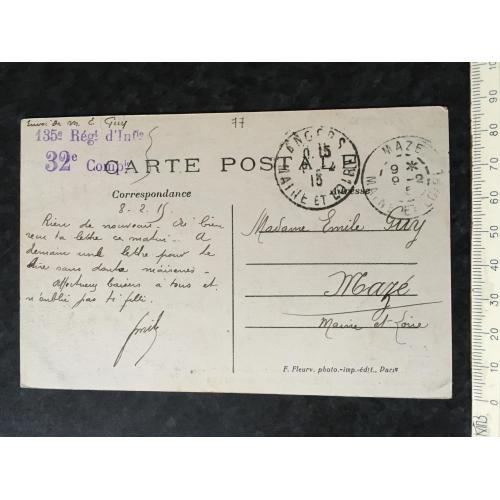 Envoi de M. E. Guy
77
135e Régt d'Infie
32e Compie
CARTE POSTALE
ANGERS
8. 15
15
MAINE ET LOIRE
MAZÉ
MAINE ET LOIRE
Correspondance
Adresse
8-2.15.
Rien de nouveau. Ai bien
reçu ta lettre ce matin. A
demain une lettre pour te
dire sans doute
Affectueux baisers à tous et
n'oublie pas ta fille.
Emile
Madame Emile Guy
Mazé
Maine et Loire
F. Fleury, photo.-imp.-édit., Paris
10 20 30 40 50 60 70 80 90